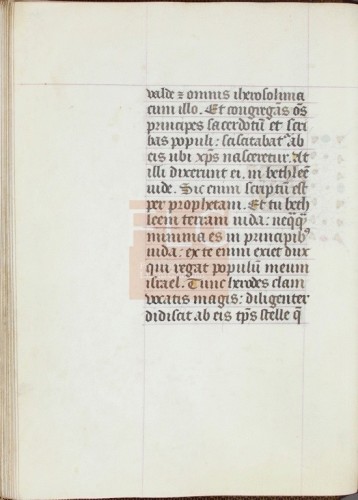 valde ⁊ omnis iherosolima
cum illo. Et congregās ōs
principes sacerdotū et scri
bas populi: sciscitabat᷑ ab
eis ubi xp̄s nasceretur. At
illi dixerunt ei. in bethleē
iude. Sic enim scriptū est
per prophetam. Et tu beth
leem terram iuda: neq̄q̄
minima es in principib⁹
iuda: ex te enim exiet dux
qui regat populū meum
israel. Tunc herodes clam
vocatis magis: diligenter
didiscit ab eis tp̄s stelle q̄